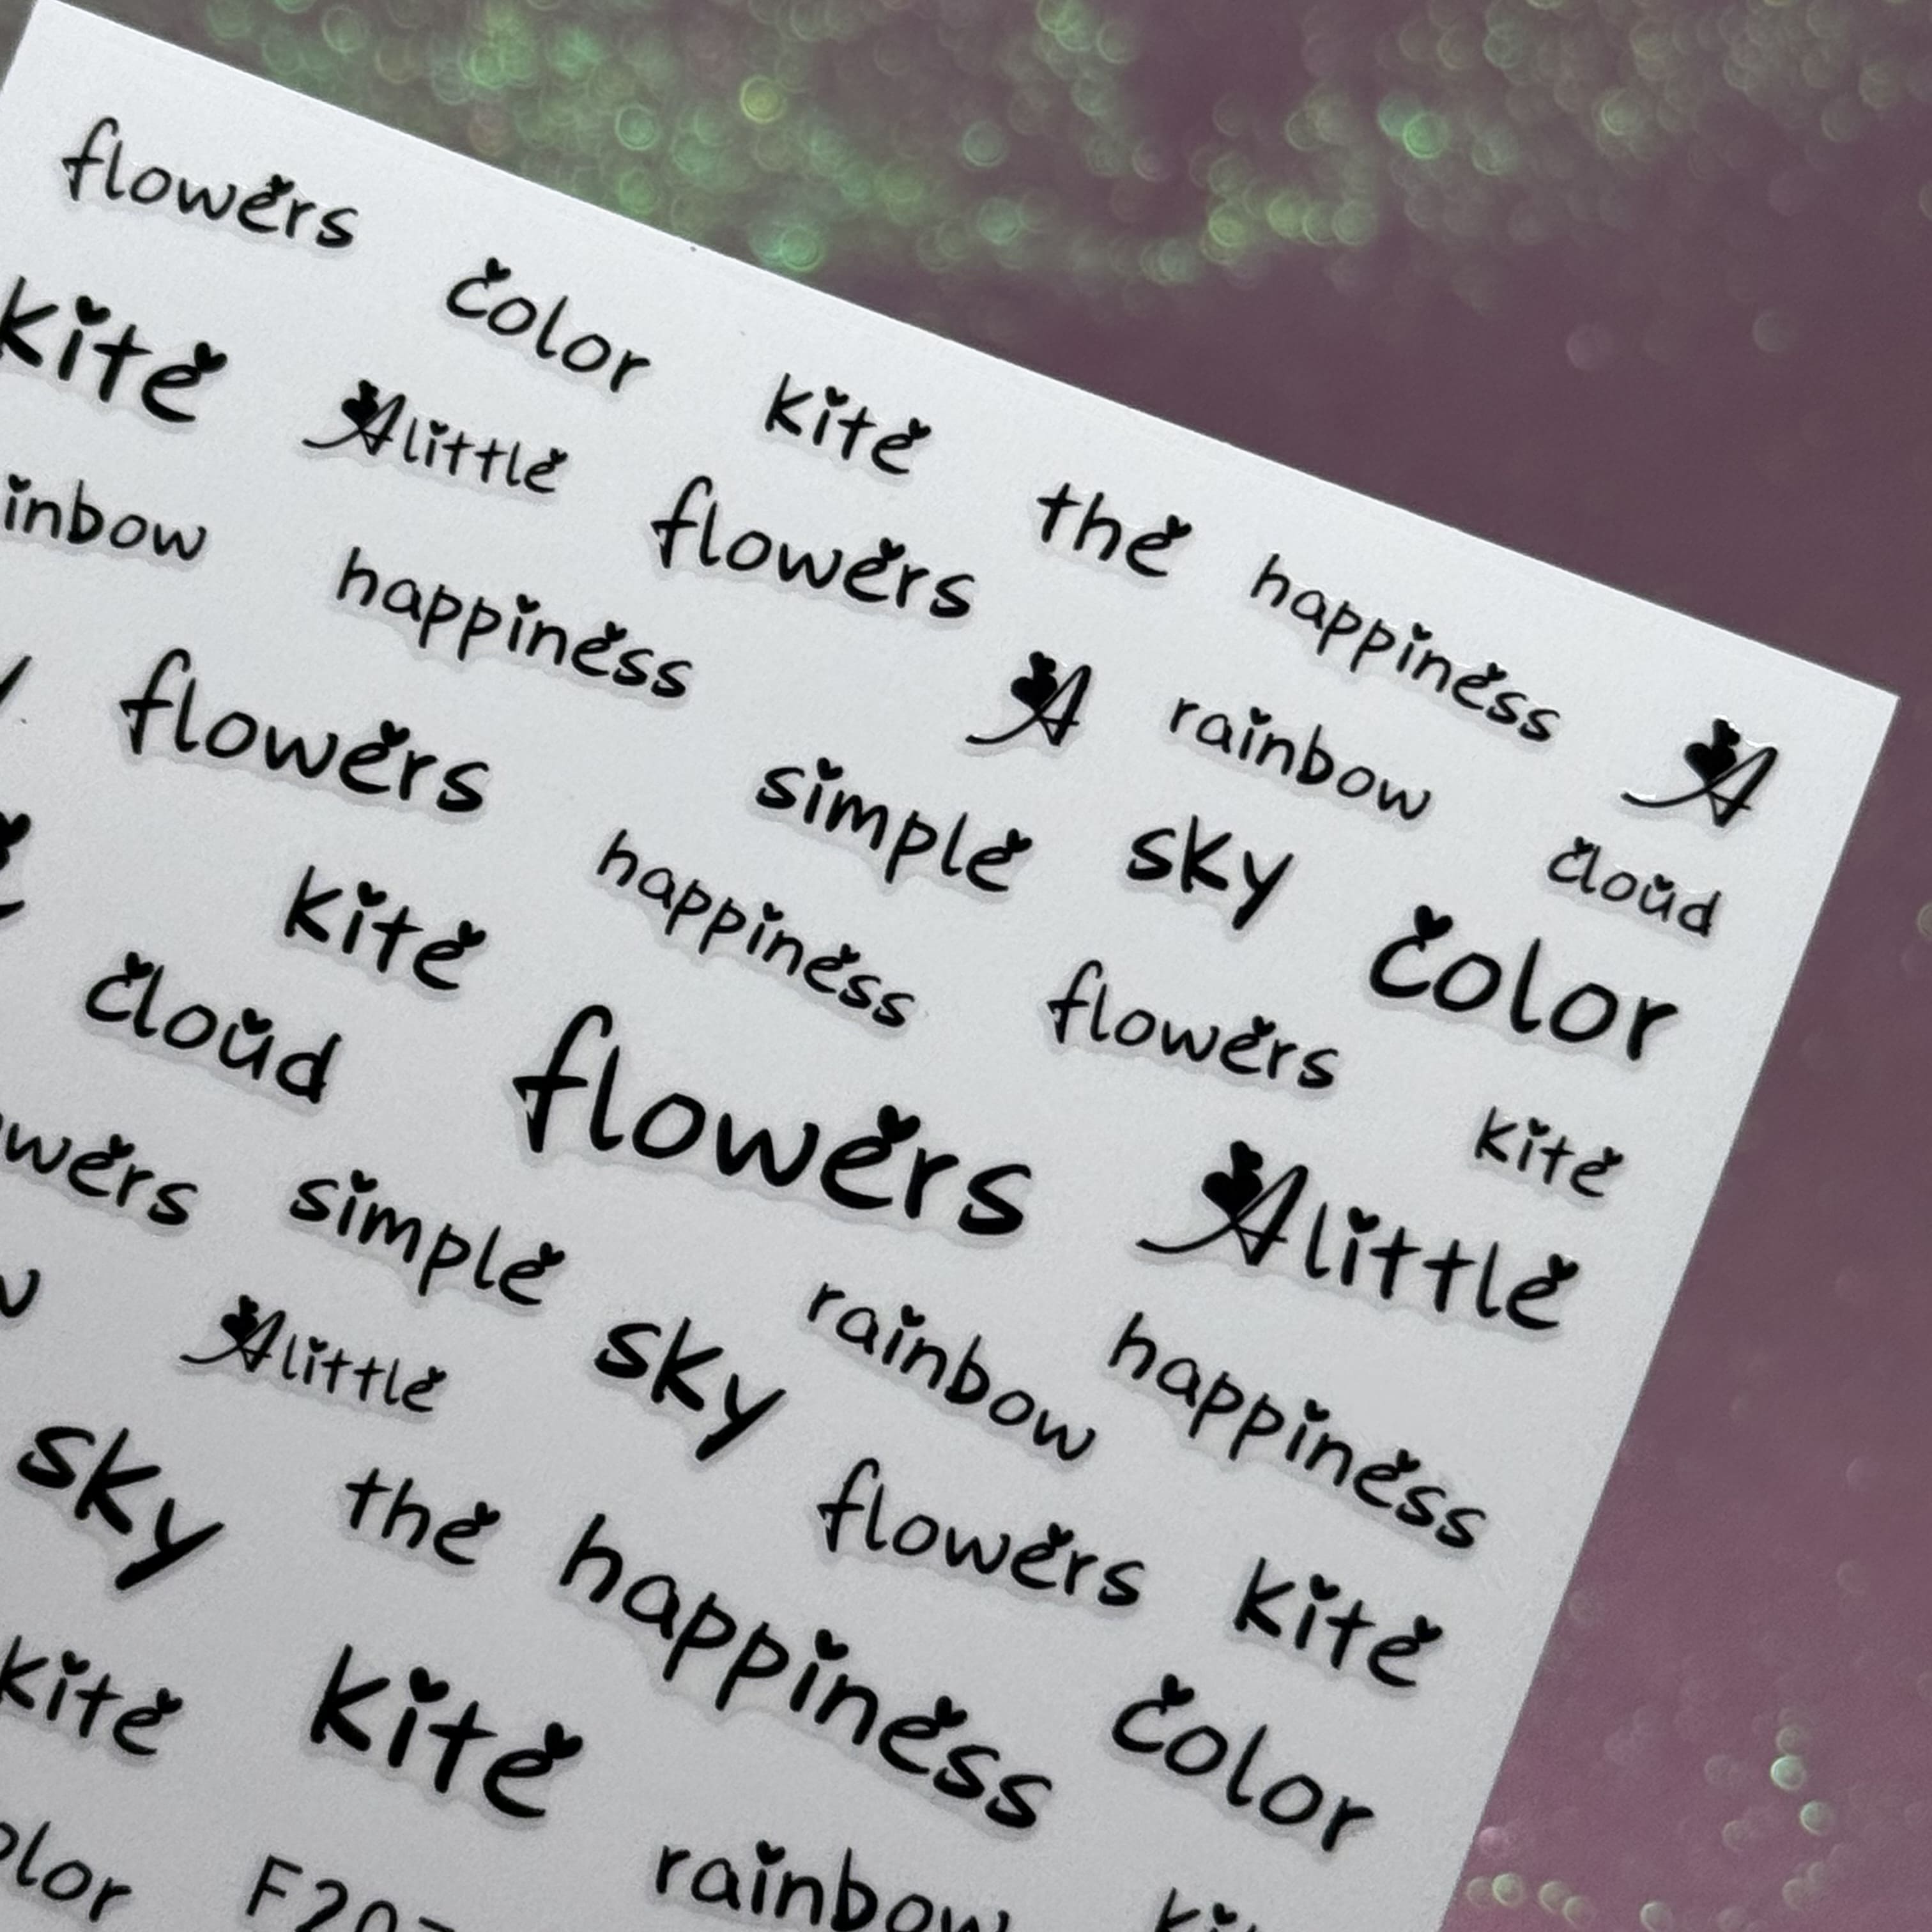 flowers color kite the happiness A
kite A little flowers A rainbow cloud
inbow happiness simple sky color
flowers happiness flowers kite
kite flowers A little
cloud rainbow happiness
wers simple sky flowers kite
A little the happiness color
sky kite rainbow
kite
olor F20